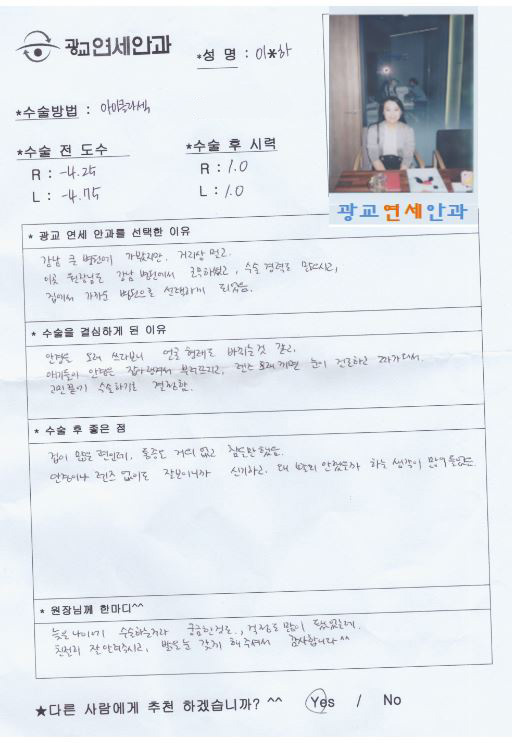 광교연세안과
*성 명 : 이*하
*수술방법 : 아이클라섹
*수술 전 도수
R : -4.25
L : -4.75
*수술 후 시력
R : 1.0
L : 1.0
광교연세안과
* 광교 연세 안과를 선택한 이유
강남 큰 병원에 가봤지만, 거리상 멀고.
이곳 원장님도 강남 병원에서 근무하셨고, 수술 경력도 많으시고,
집에서 가까운 병원으로 선택하게 되었음.
* 수술을 결심하게 된 이유
안경을 오래 쓰다보니 얼굴 형태도 바뀌는것 같고.
아기들이 안경을 잡아 부러뜨리고, 렌즈 오래 끼면 눈이 건조하고
고민끝에 수술하기로 결심함.
* 수술 후 좋은 점
겁이 많은 편인데, 통증도 거의 없고 참을만 했음.
안경이나 렌즈 없이도 잘보이니까 신기하고, 왜 빨리 안했을까 하는 생각이 많이 들었음.
* 원장님께 한마디^^
늦은 나이에 수술하는거라 궁금한것도, 걱정도 많이 됐었는데.
친절히 잘 해주시고, 밝은눈 갖게 해주셔서 감사합니다^^
★다른 사람에게 추천 하겠습니까? ^^ Yes / No